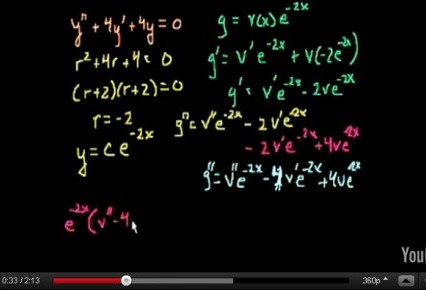 y'' + 4y' + 4y = 0
r² + 4r + 4 = 0
(r+2)(r+2) = 0
r = -2
y = ce^-2x
g = v(x)e^-2x
g' = v'e^-2x + v(-2e^-2x)
g' = v'e^-2x - 2ve^-2x
g'' = v''e^-2x - 2v'e^-2x
- 2v'e^-2x + 4ve^-2x
g'' = v''e^-2x - 4v'e^-2x + 4ve^-2x
e^-2x (v'' - 4
You
0:33 / 2:13
360p